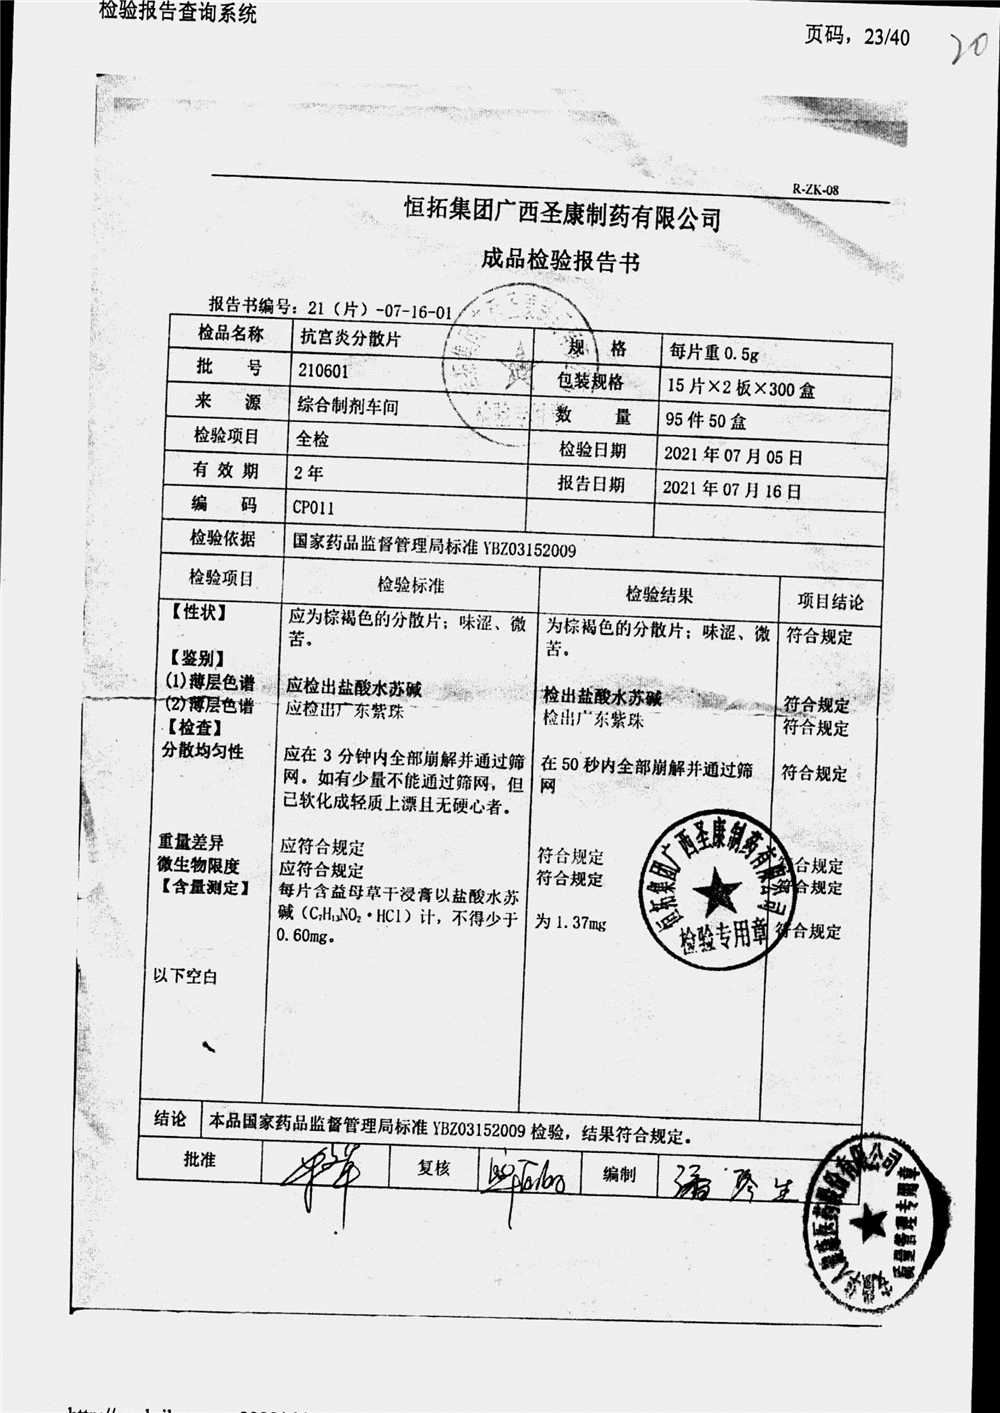 检验报告查询系统
页码，23/40
20
R-ZK-08
恒拓集团广西圣康制药有限公司
成品检验报告书
报告书编号：21（片）-07-16-01
检品名称 抗宫炎分散片 规 格 每片重0.5g
批 号 210601 包装规格 15片×2板×300盒
来 源 综合制剂车间 数 量 95件50盒
检验项目 全检 检验日期 2021年07月05日
有效期 2年 报告日期 2021年07月16日
编 码 CP011
检验依据 国家药品监督管理局标准YBZ03152009
检验项目 检验标准 检验结果 项目结论
【性状】 应为棕褐色的分散片；味涩、微 为棕褐色的分散片；味涩、微 符合规定
苦。 苦。
【鉴别】
(1)薄层色谱 应检出盐酸水苏碱 检出盐酸水苏碱 符合规定
(2)薄层色谱 应检出广东紫珠 检出广东紫珠 符合规定
【检查】
分散均匀性 应在3分钟内全部崩解并通过筛 在50秒内全部崩解并通过筛 符合规定
网。如有少量不能通过筛网，但 网
已软化成轻质上漂且无硬心者。
重量差异 应符合规定 符合规定 符合规定
微生物限度 应符合规定 符合规定 符合规定
【含量测定】 每片含益母草干浸膏以盐酸水苏
碱（C₇H₁₃NO₂·HCl）计，不得少于 为1.37mg 符合规定
0.60mg。
以下空白
恒拓集团广西圣康制药有限公司
检验专用章
结论 本品国家药品监督管理局标准YBZ03152009检验，结果符合规定。
批准 复核 编制
质量管理专用章